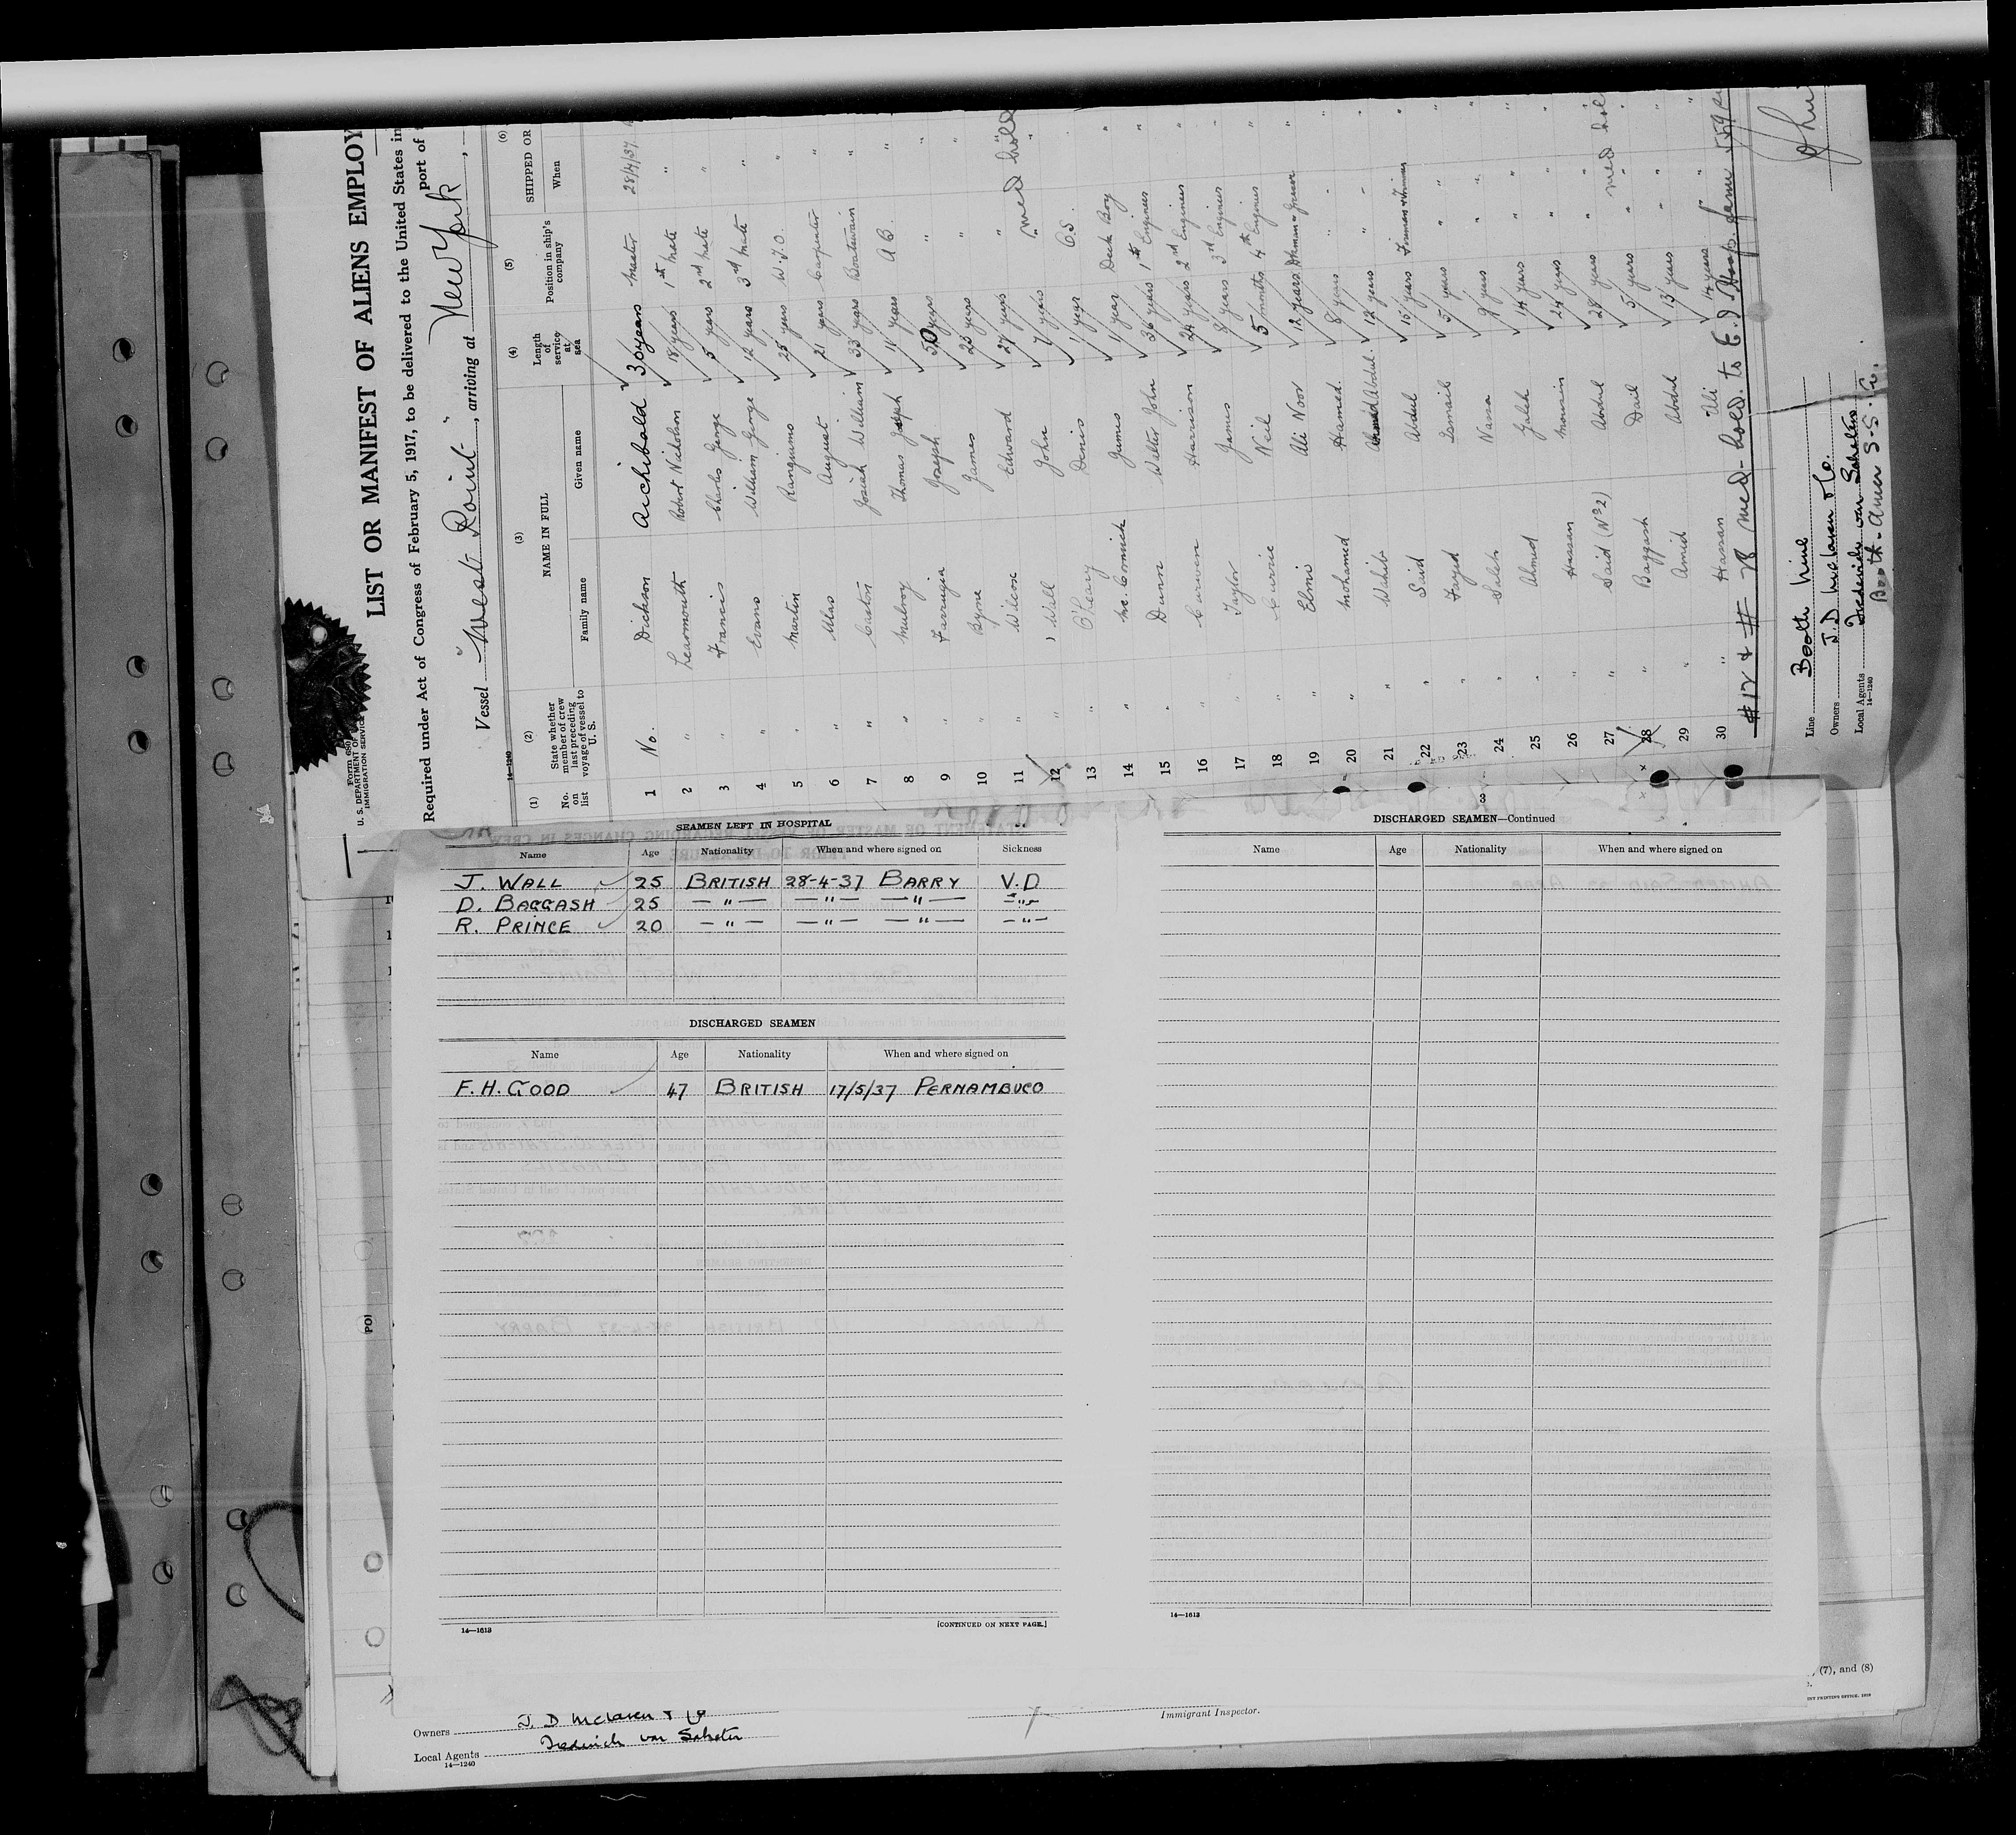 Form 680
U. S. DEPARTMENT OF
IMMIGRATION SERVICE
LIST OR MANIFEST OF ALIENS EMPLOY
Required under Act of Congress of February 5, 1917, to be delivered to the United States in
port of
Vessel "West Point", arriving at New York,
14—1240
(1) (2) (3) (4) (5) (6)
No. on list
State whether member of crew last preceding voyage of vessel to U. S.
NAME IN FULL
Family name Given name
Length of service at sea
Position in ship's company
SHIPPED OR
When
1 No. Dickson Archibald 36 years Master 28/4/37
2 " Learmouth Robert Nicholson 18 years 1st Mate "
3 " Francis Charles George 5 years 2nd Mate "
4 " Evans William George 12 years 3rd Mate "
5 " Martin 25 years W.T.O. "
6 " August 21 years Carpenter "
7 " Caston Josiah William 33 years Boatswain "
8 " Mulroy Thomas Joseph 11 years A B. "
9 " Farrugia Joseph 50 years " "
10 " Byrne James 23 years " "
11 " Wilcox Edward 27 years " "
12 " Wall John 7 years " " med hold
13 " O'Leary Denis 1 year O.S. "
14 " Mc. Cormick James 1 year Deck Boy "
15 " Dunn Walter John 36 years 1st Engineer "
16 " Curwen Harrison 24 years 2nd Engineer "
17 " Taylor James 8 years 3rd Engineer "
18 " Currie Neil 5 months 4th Engineer "
19 " Elmi Ali Noor 12 years "
20 " Mohamed Hamed 8 years " "
21 " Wahib Abdul. 12 years " "
22 " Said Abdul 15 years Fireman & Trimmer "
23 " Fayed Ismail 5 years " "
24 " Saleh Nassa 9 years " "
25 " Ahmed Saleh 14 years " "
26 " Hassan 24 years " "
27 " Said (No 2) Abdul 28 years " "
28 " Baggash Dail 5 years " " med hold
29 " Amid Abdul 13 years " "
30 " Hassan Ali 14 years " "
#12 & # 28 med-hold to E.I Hosp.
Line Booth Line
Owners J.D McLaren & Co.
Local Agents Frederick van Schelten
Booth-Amer S-S. Co.
14—1240
John
SEAMEN LEFT IN HOSPITAL
Name Age Nationality When and where signed on Sickness
J. WALL 25 BRITISH 28-4-37 BARRY V.D
D. BAGGASH 25 — " — — " — — " — — " —
R. PRINCE 20 — " — — " — — " — — " —
DISCHARGED SEAMEN
Name Age Nationality When and where signed on
F. H. GOOD 47 BRITISH 17/5/37 PERNAMBUCO
14—1613
[CONTINUED ON NEXT PAGE.]
3
DISCHARGED SEAMEN—Continued
Name Age Nationality When and where signed on
14—1613
Owners J. D McLaren & Co
Local Agents
14—1240
Immigrant Inspector.
(7), and (8)